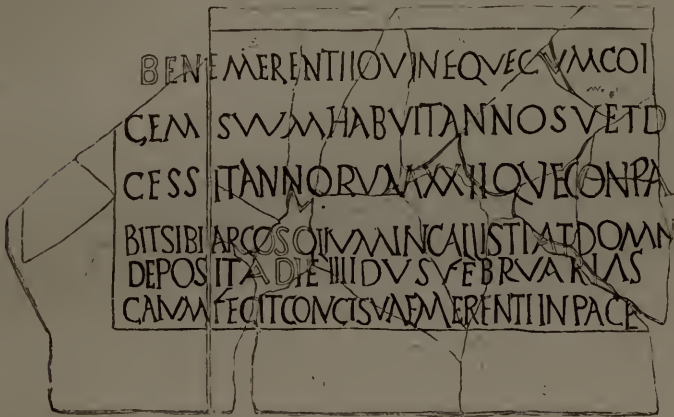 BENEMERENTIIOVINEQVECVMCOI
CEM SVVMHABVITANNOSVETD
CESSITANNORVMXXIIQVECONPA
BITSIBIARCOSOLIVMINCALLISTIATDOMN
DEPOSITADIEIIIIDVSFEBRVARIAS
CAIVMFECITCONCISVAEMERENTIINPACE